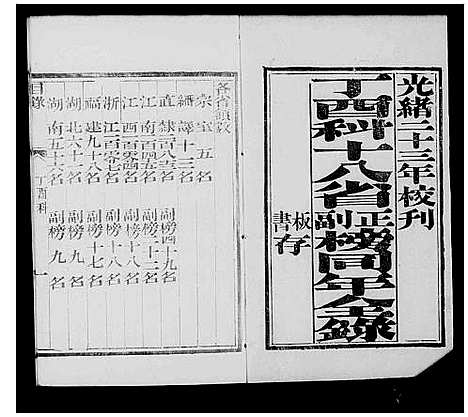 光緒二十三年校刊
丁酉科十八省正副榜同年全錄
板存
書
各省額數
宗室五名
繙譯十三名
直隸百八名 副榜四十九名
江南百四五名 副榜二十二名
江西百零四名 副榜十八名
浙江百零七名 副榜十八名
福建九十八名 副榜十七名
湖北六十一名 副榜九名
湖南五十一名 副榜九名
目錄 丁酉科 一